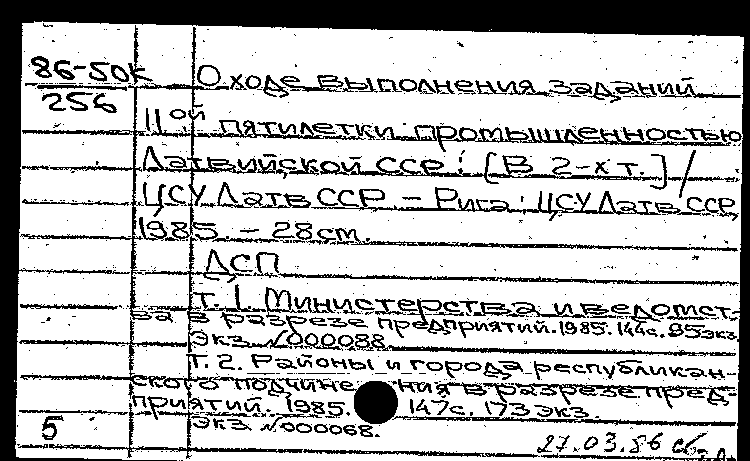 86-50К
256
О ходе выполнения заданий
11ой пятилетки промышленностью
Латвийской ССР: [В 2-х т.] /
ЦСУ Латв ССР – Рига: ЦСУ Латв ССР,
1985. – 28 см.
ДСП
т. 1. Министерства и ведомст-
ва в разрезе предприятий. 1985. 144с. 85экз.
Экз. №000088.
Т. 2. Районы и города республикан-
ского подчинения в разрезе пред-
приятий. 1985. 147с. 173 экз.
Экз. №000068.
5
27.03.86